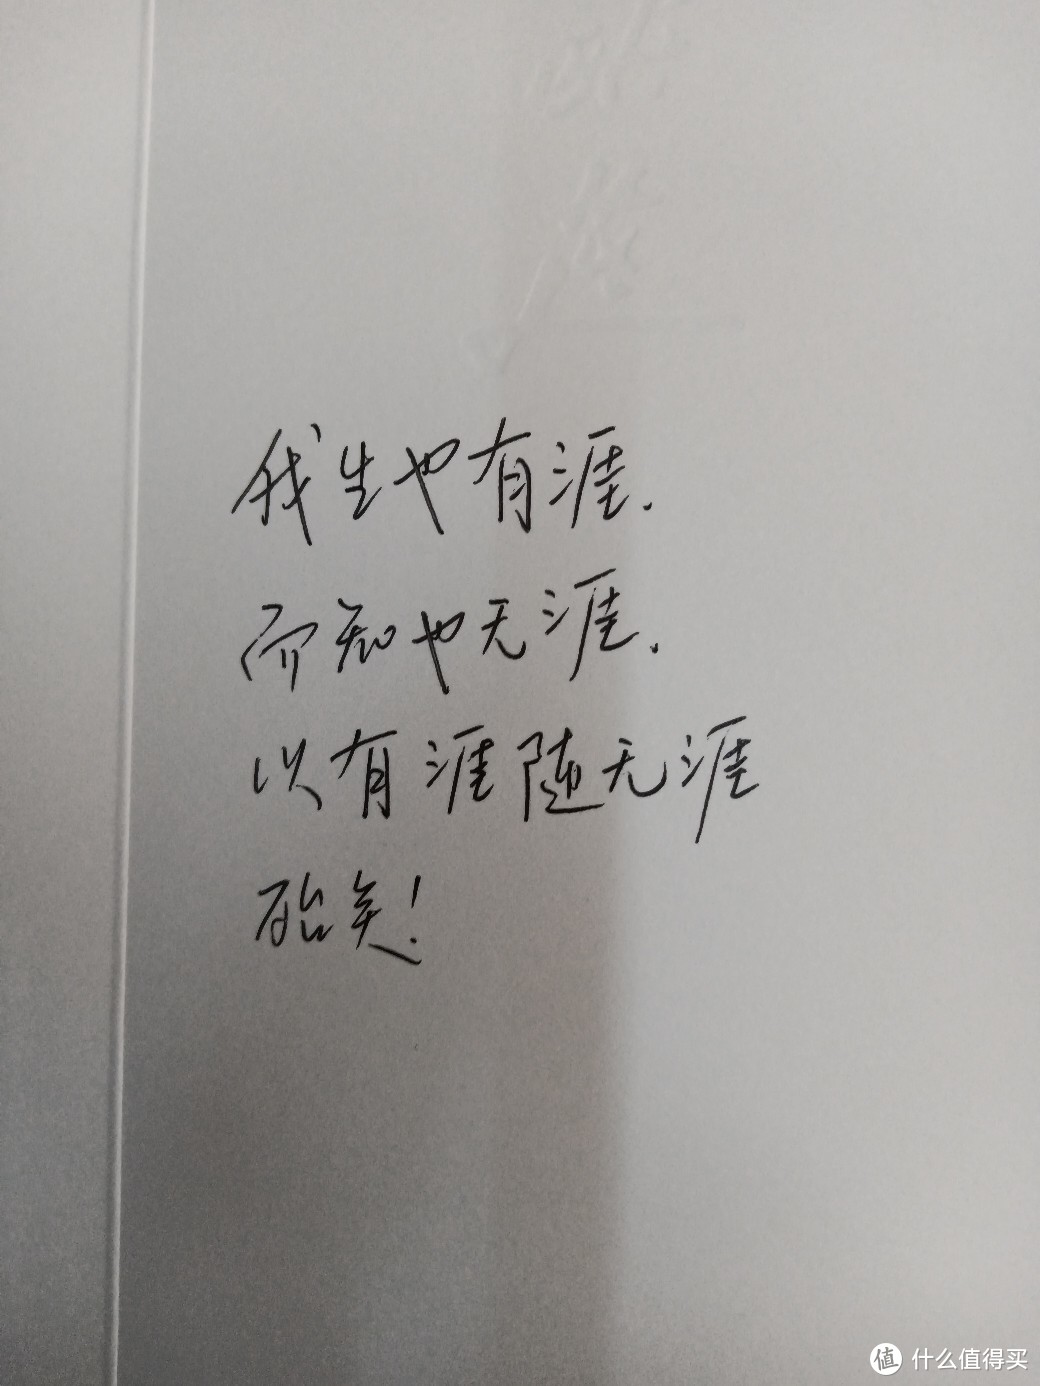 我生也有涯.
而知也无涯.
以有涯随无涯
殆矣!
值 什么值得买